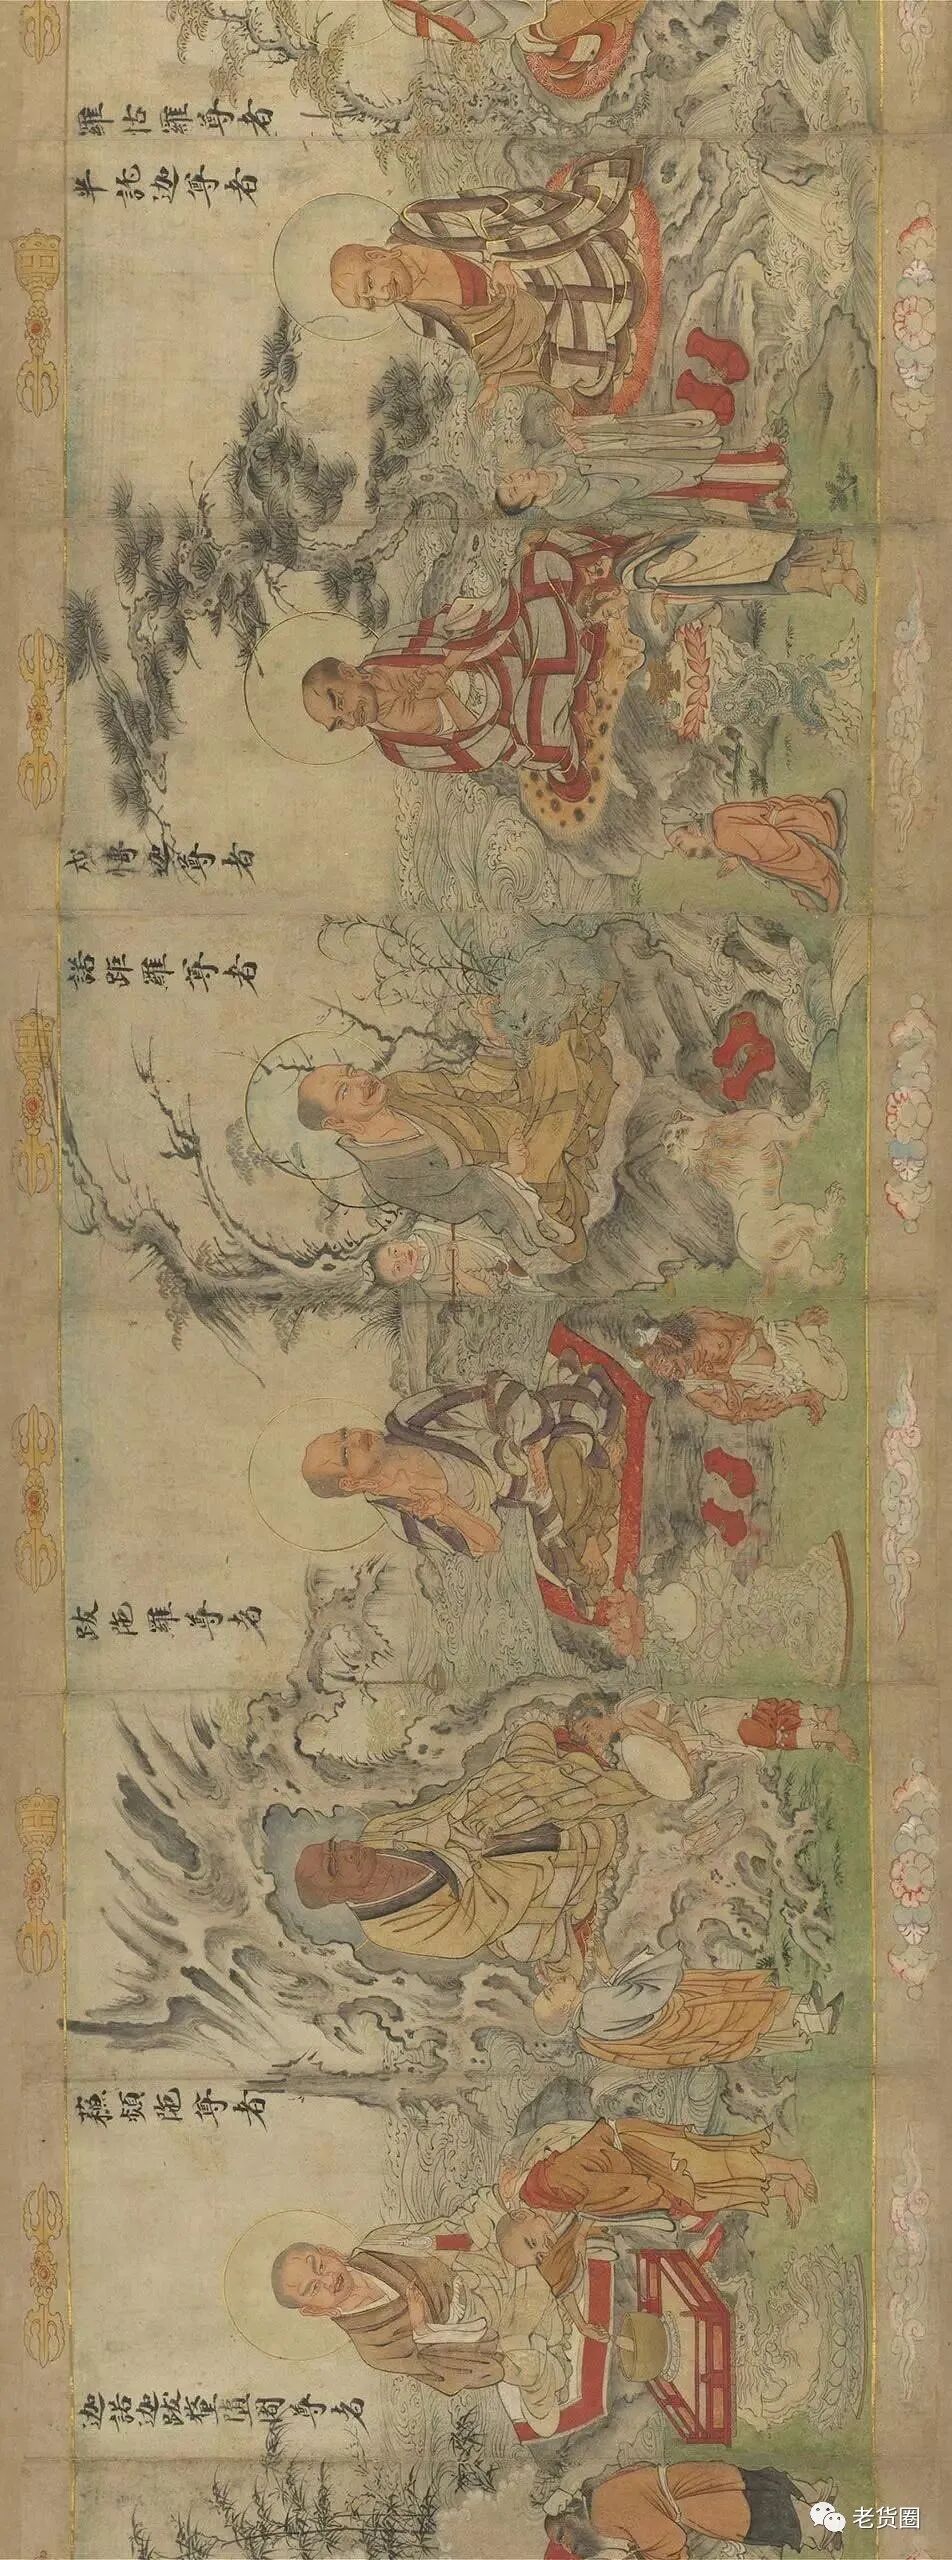 羅怙羅尊者
半託迦尊者
戍愽迦尊者
諾距羅尊者
跋陁羅尊者
蘇頻陁尊者
迦諾迦跋釐墮闍尊者
老货圈